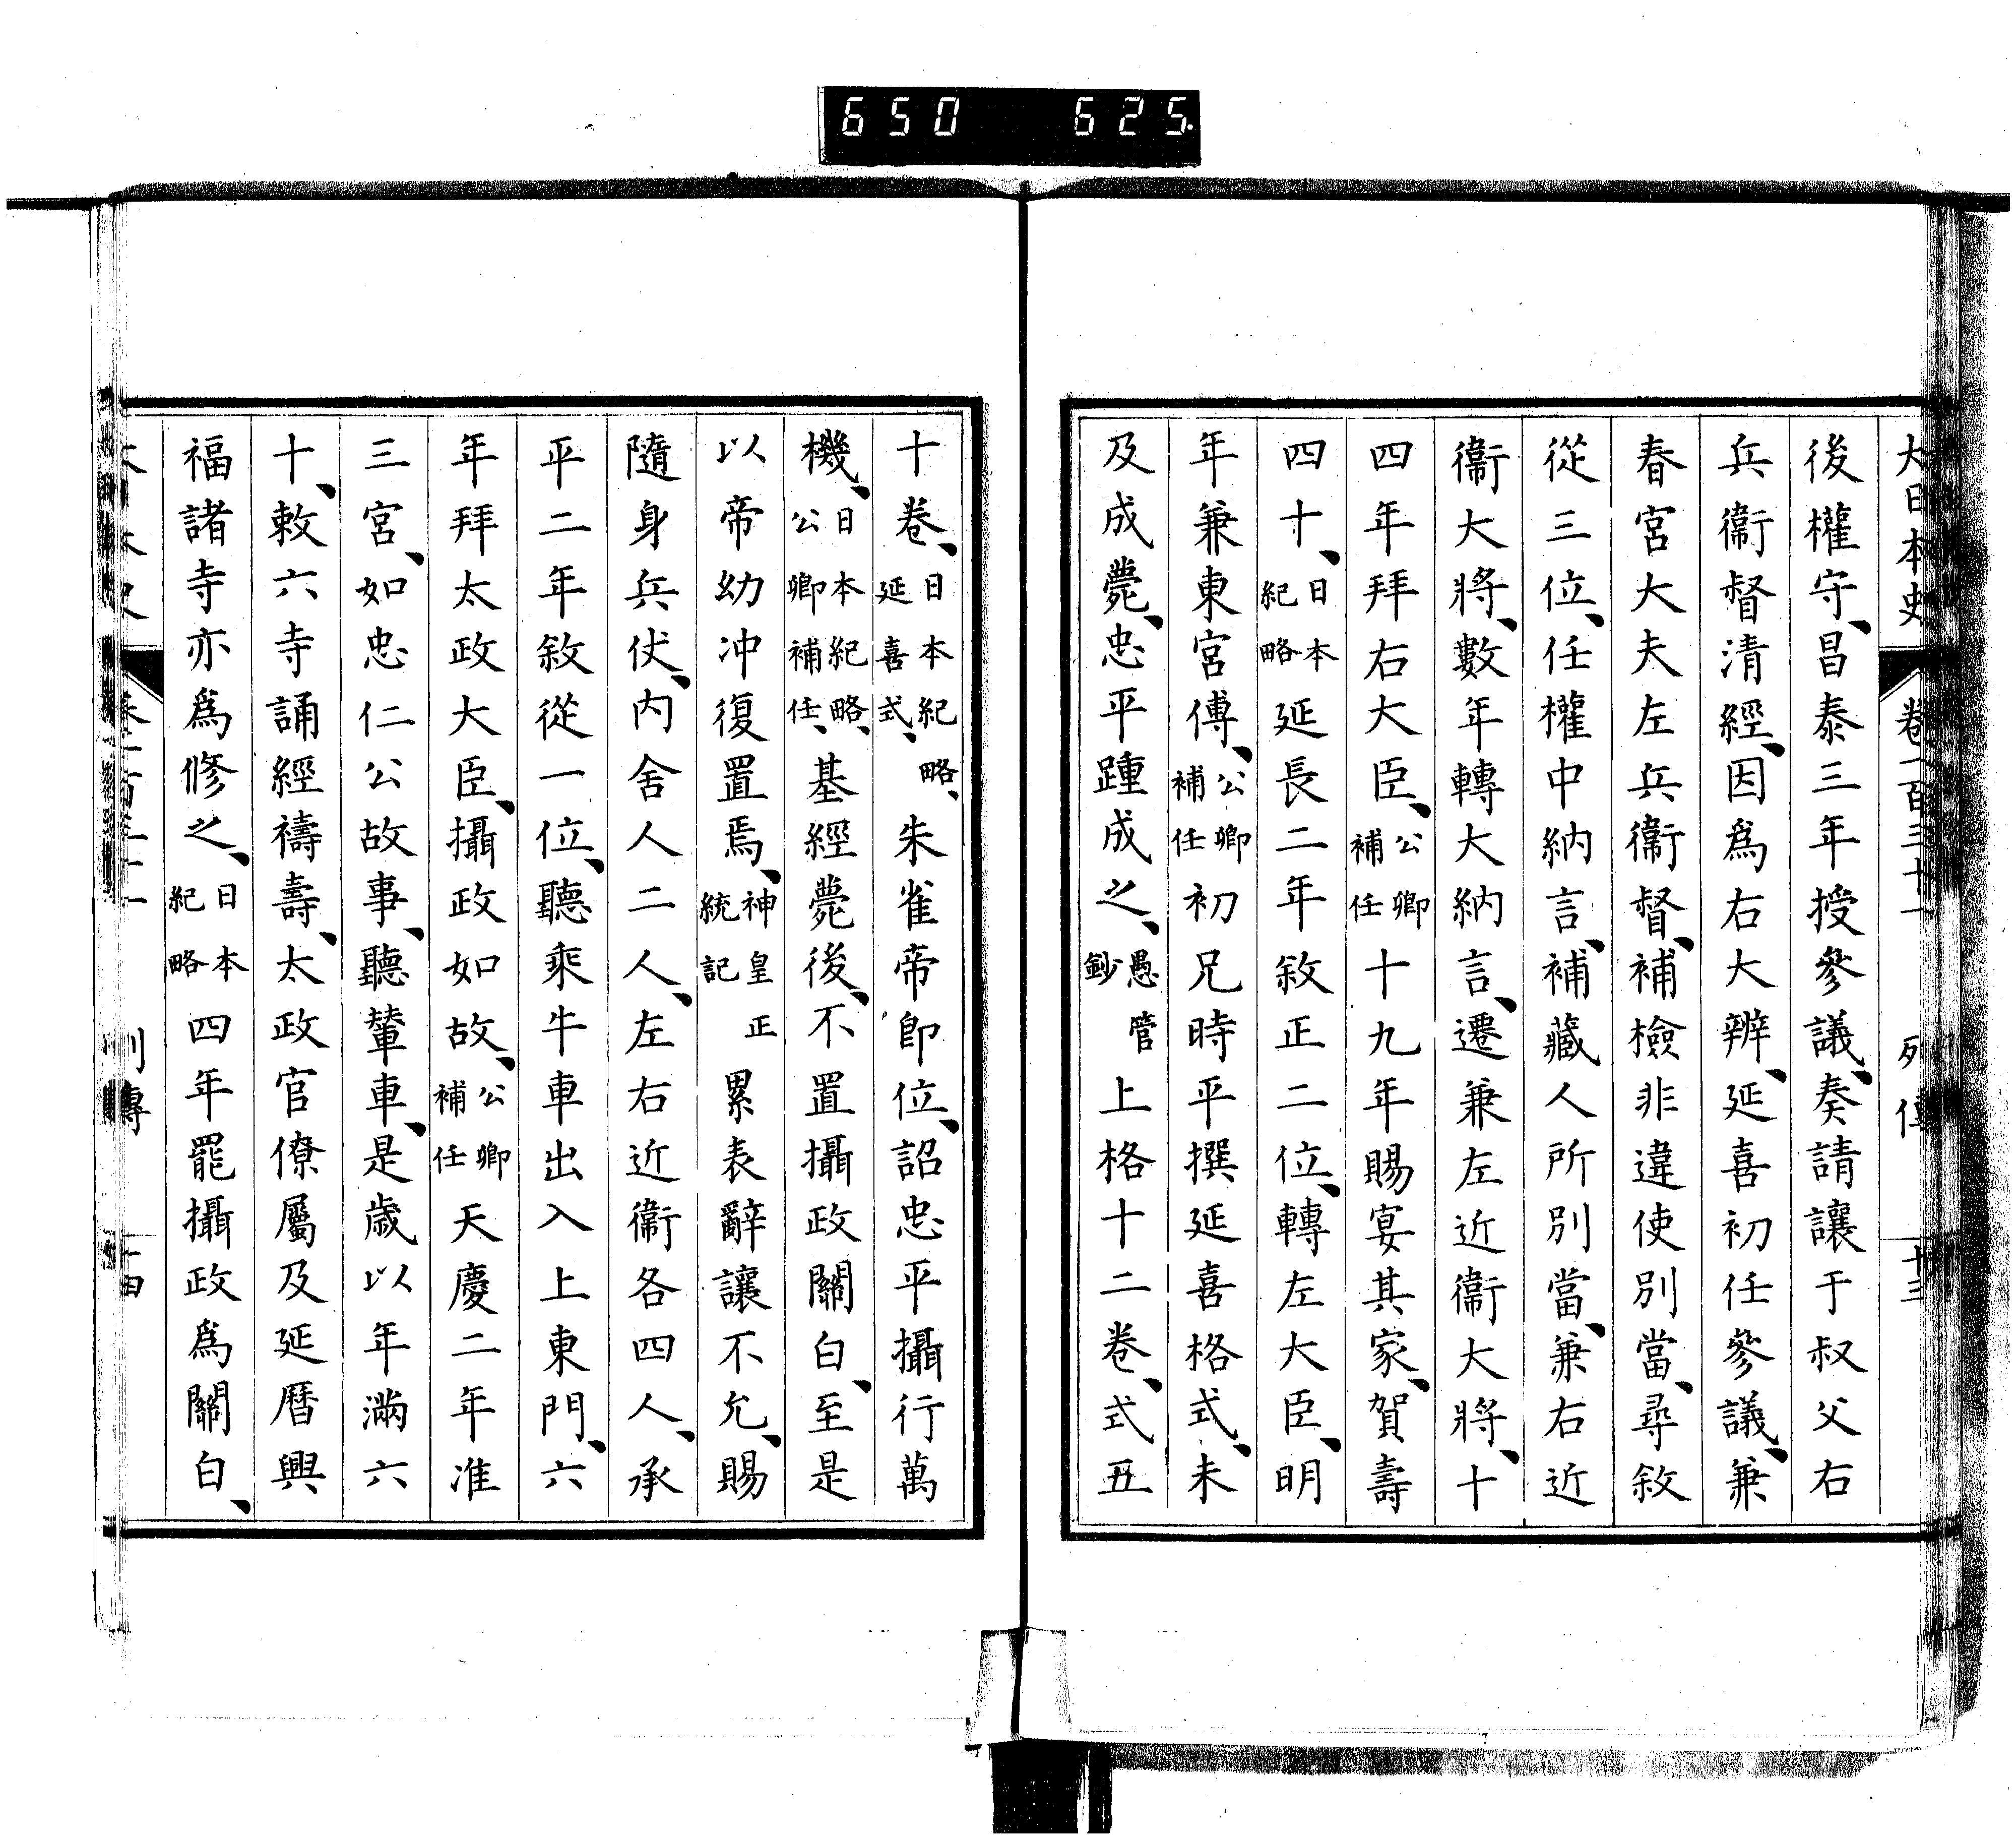 650 625.
大日本史 卷一百三十一 列傳 十三
後權守、昌泰三年授參議、奏請讓于叔父右
兵衞督清經、因爲右大辨、延喜初任參議、兼
春宮大夫左兵衞督、補檢非違使別當、尋敘
從三位、任權中納言、補藏人所別當、兼右近
衞大將、數年轉大納言、遷兼左近衞大將、十
四年拜右大臣、公卿補任十九年賜宴其家、賀壽
四十、日本紀略延長二年敘正二位、轉左大臣、明
年兼東宮傅、公卿補任初兄時平撰延喜格式、未
及成薨、忠平踵成之、愚管鈔上格十二卷、式五
十卷、日本紀略、延喜式、朱雀帝卽位、詔忠平攝行萬
機、日本紀略、公卿補任、基經薨後、不置攝政關白、至是
以帝幼冲復置焉、神皇正統記累表辭讓不允、賜
隨身兵仗、內舍人二人、左右近衞各四人、承
平二年敘從一位、聽乘牛車出入上東門、六
年拜太政大臣、攝政如故、公卿補任天慶二年准
三宮、如忠仁公故事、聽輦車、是歲以年滿六
十、敕六寺誦經禱壽、太政官僚屬及延曆興
福諸寺亦爲修之、日本紀略四年罷攝政爲關白、
列傳